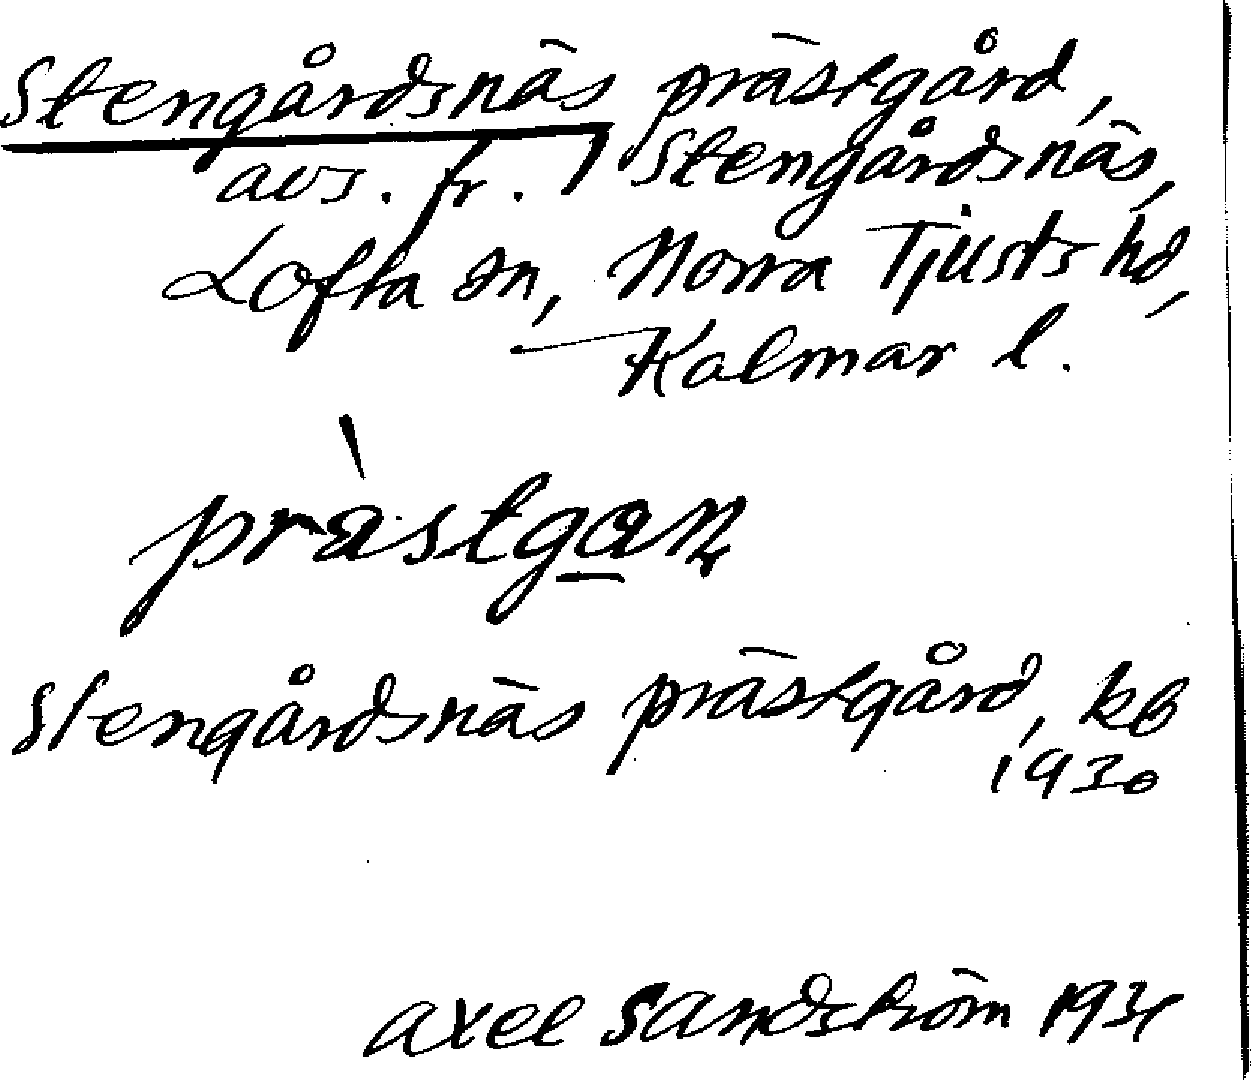 Stengårdsnäs prästgård,
avs. fr. Stengårdsnäs,
Lofta sn, Norra Tjusts hd,
Kalmar l.
prästgan
Stengårdsnäs prästgård, kb
1930
Axel Sandström